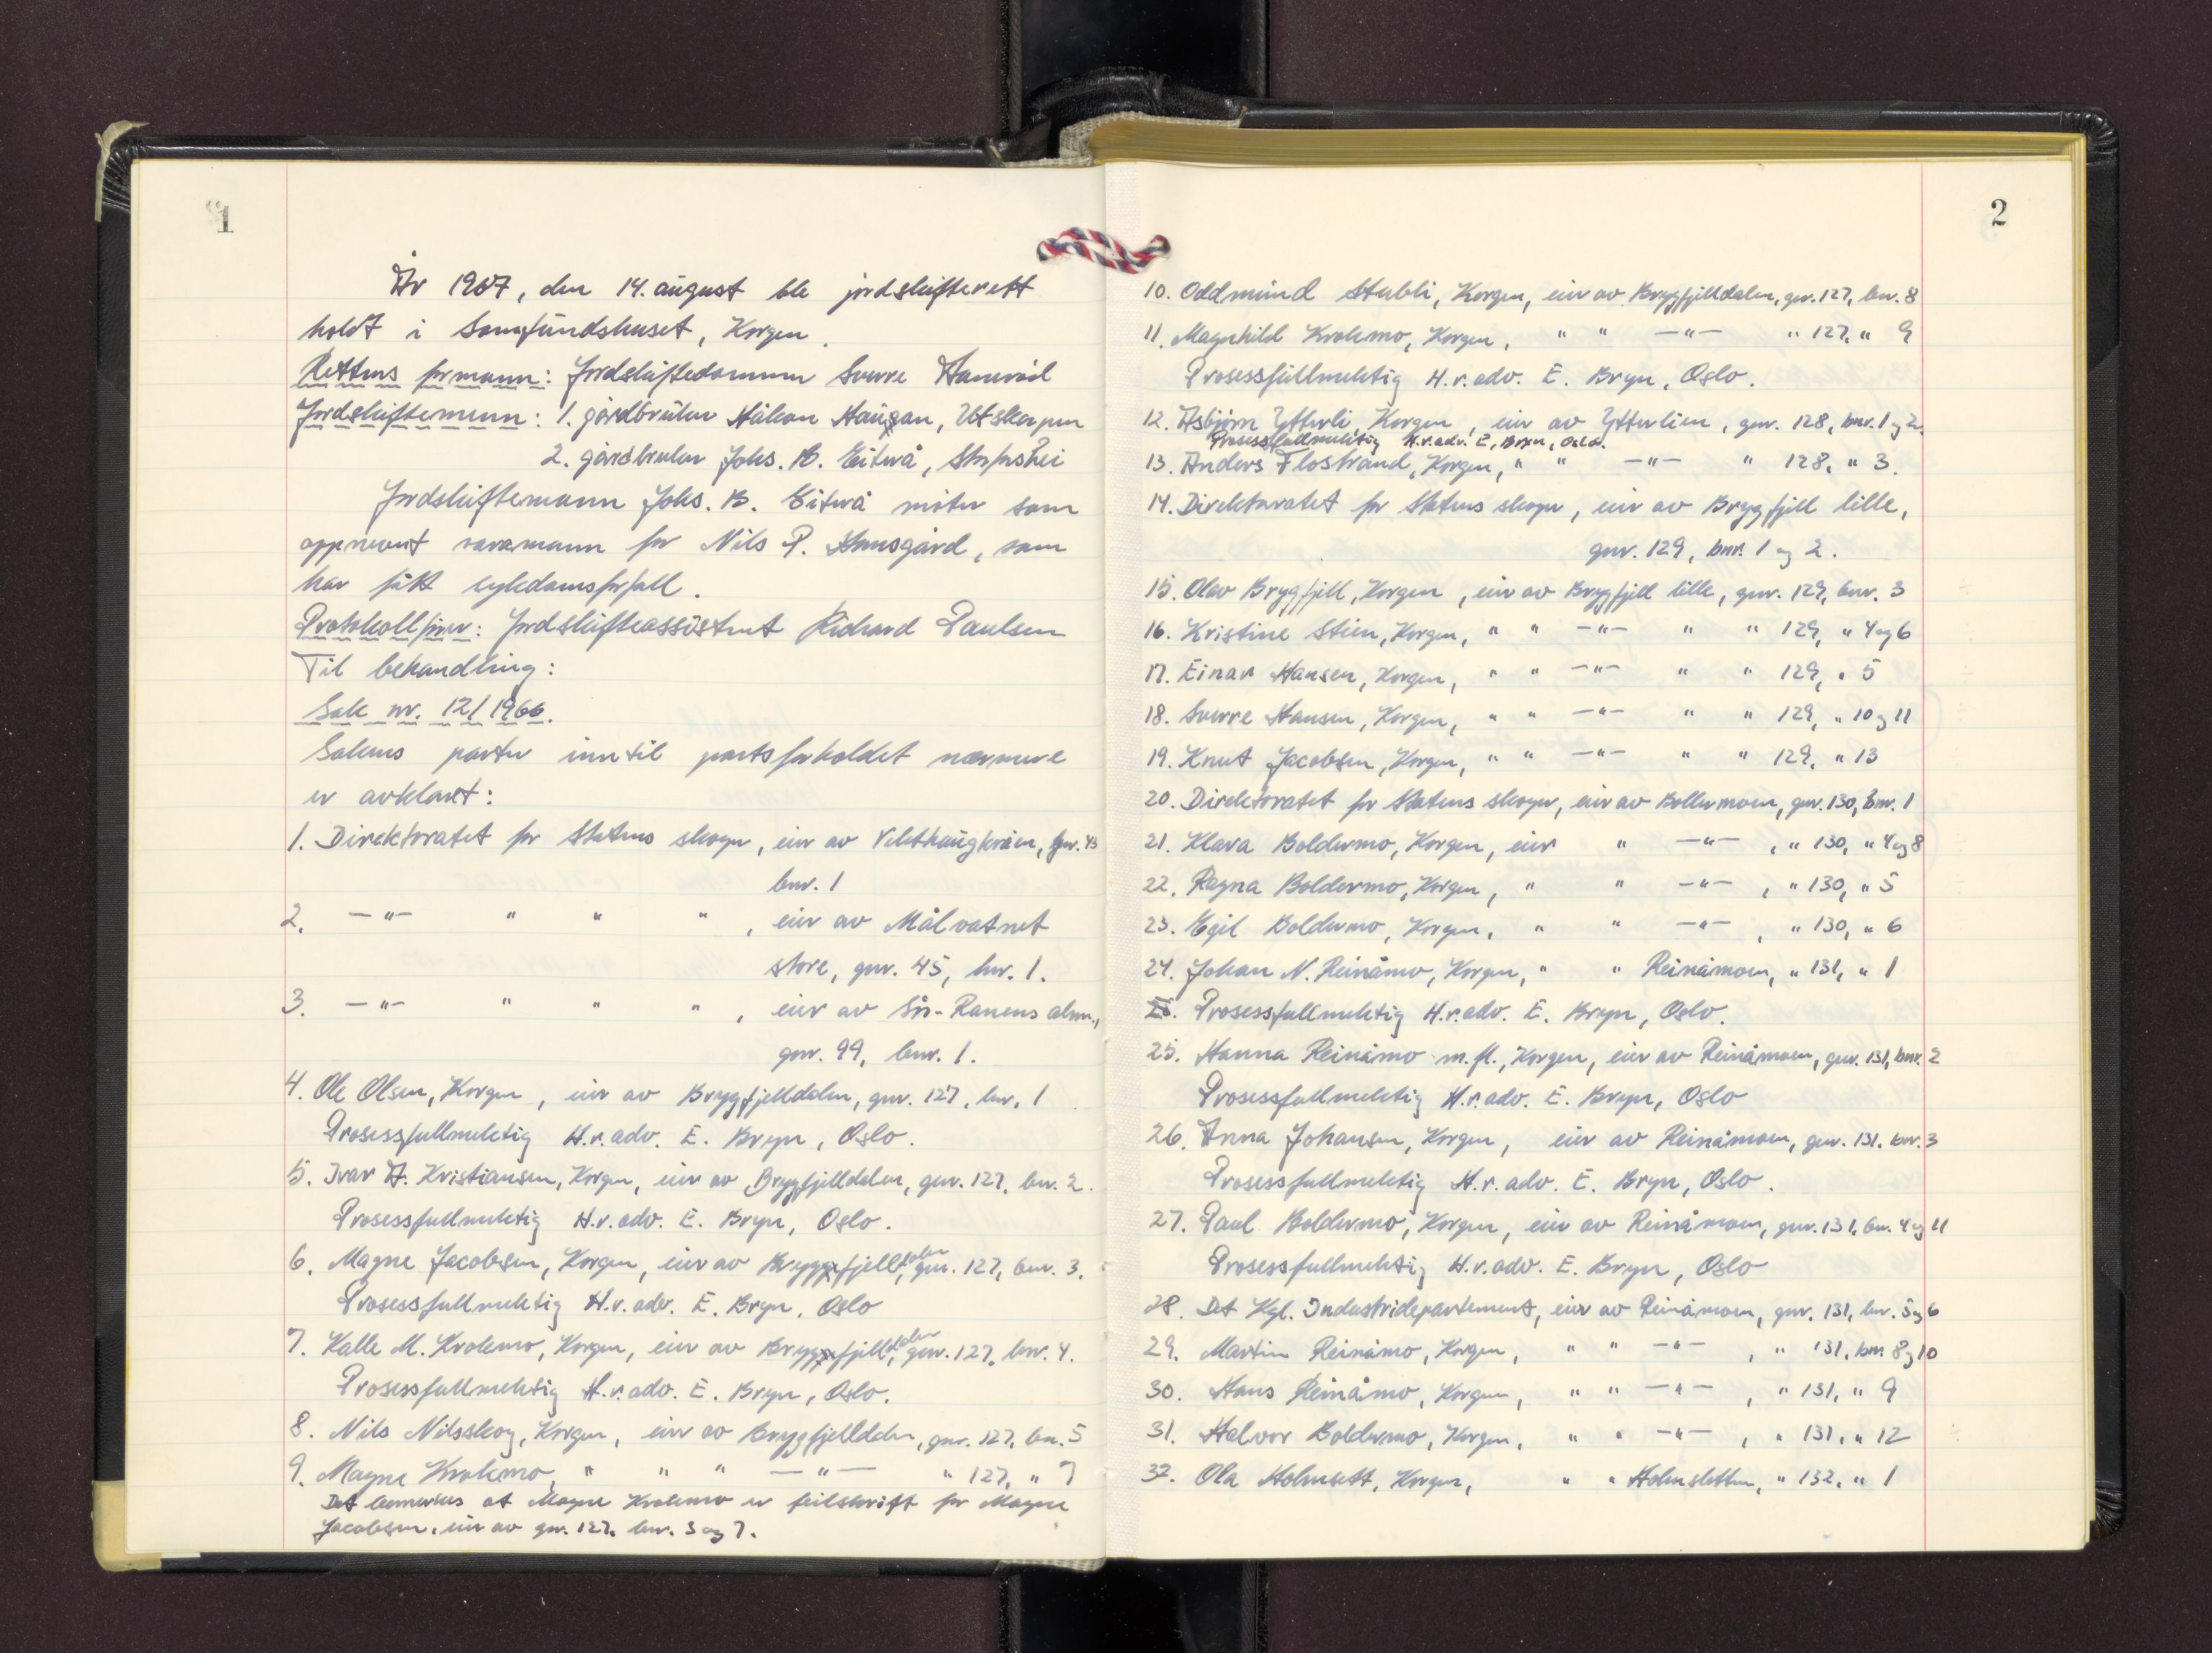 1
År 1967, den 14. august ble jordskifterett
holdt i Samfundshuset, Korgen.
Rettens formann: Jordskiftedommer Sverre
Jordskiftemenn: 1. gårdbruker Håkon Haugan, Utskarpen
2. gårdbruker Johs. B. Eiterå,
Jordskiftemann Johs. B. Eiterå møter som
oppnevnt varamann for Nils P. Hansgård, som
har fått sykdomsforfall.
Protokollfører: Jordskifteassistent Richard Paulsen
Til behandling:
Sak nr. 12/1966.
Sakens parter inntil partsforholdet nærmere
er avklart:
1. Direktoratet for Statens skoger, eier av, gnr. 43
bnr. 1
2. -"- " " ", eier av Målvatnet
store, gnr. 45, bnr. 1.
3. -"- " " ", eier av Sör-Ranens alm.,
gnr. 99, bnr. 1.
4. Ole Olsen, Korgen, eier av Bryggfjelldalen, gnr. 127, bnr. 1
Prosessfullmektig H.r.adv. E. Bryn, Oslo.
5. Ivar A. Kristiansen, Korgen, eier av Bryggfjelldalen, gnr. 127, bnr. 2.
Prosessfullmektig H.r.adv. E. Bryn, Oslo.
6. Magne Jacobsen, Korgen, eier av Bryggfjelldalen, gnr. 127, bnr. 3.
Prosessfullmektig H.r.adv. E. Bryn, Oslo
7. Kalle M. Krokmo, Korgen, eier av Bryggfjelldalen, gnr. 127, bnr. 4.
Prosessfullmektig H.r.adv. E. Bryn, Oslo.
8. Nils Nilsskog, Korgen, eier av Bryggfjelldalen, gnr. 127, bnr. 5
9. Magne Krokmo, " " " -"- " 127, " 7
Det bemerkes at Magne Krokmo er feilskrift for Magne
Jacobsen, eier av gnr. 127, bnr. 3 og 7.
2
10. Oddmund Stabli, Korgen, eier av Bryggfjelldalen, gnr. 127, bnr. 8
11. Magnhild Krokmo, Korgen, " " -"- " 127, " 9
Prosessfullmektig H.r.adv. E. Bryn, Oslo.
12. Asbjørn Ytterli, Korgen, eier av Ytterlien, gnr. 128, bnr. 1 og 2.
Prosessfullmektig H.r.adv. E. Bryn, Oslo.
13. Anders Flostrand, Korgen, " " -"- " 128, " 3.
14. Direktoratet for Statens skoger, eier av Bryggfjell lille,
gnr. 129, bnr. 1 og 2.
15. Olav Bryggfjell, Korgen, eier av Bryggfjell lille, gnr. 129, bnr. 3
16. Kristine Stien, Korgen, " " -"- " " 129, " 4 og 6
17. Einar Hansen, Korgen, " " -"- " " 129, " 5
18. Sverre Hansen, Korgen, " " -"- " " 129, " 10 og 11
19. Knut Jacobsen, Korgen, " " -"- " " 129, " 13
20. Direktoratet for Statens skoger, eier av Bollermoen, gnr. 130, bnr. 1
21. Klara Boldermo, Korgen, eier " -"- , " 130, " 4 og 8
22. Ragna Boldermo, Korgen, " " -"- , " 130, " 5
23. Egil Boldermo, Korgen, " " -"- , " 130, " 6
24. Johan N. Reinåmo, Korgen, " " Reinåmoen, " 131, " 1
Prosessfullmektig H.r.adv. E. Bryn, Oslo.
25. Hanna Reinåmo m.fl., Korgen, eier av Reinåmoen, gnr. 131, bnr. 2
Prosessfullmektig H.r.adv. E. Bryn, Oslo
26. Anna Johansen, Korgen, eier av Reinåmoen, gnr. 131, bnr. 3
Prosessfullmektig H.r.adv. E. Bryn, Oslo.
27. Paul Boldermo, Korgen, eier av Reinåmoen, gnr. 131, bnr. 4 og 11
Prosessfullmektig H.r.adv. E. Bryn, Oslo
28. Det Kgl. Industridepartement, eier av Reinåmoen, gnr. 131, bnr. 5 og 6
29. Martin Reinåmo, Korgen, " " -"- , " 131, bnr. 8 og 10
30. Hans Reinåmo, Korgen, " " -"- , " 131, " 9
31. Halvor Boldermo, Korgen, " " -"- , " 131, " 12
32. Ola Holmslett, Korgen, " " Holmsletten, " 132, " 1